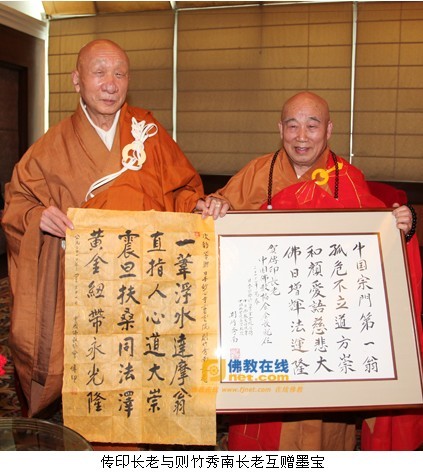 一葦淨水達摩翁
直指人心道大崇
震旦扶桑同法澤
黃金紐帶永光隆
中国宗門第一翁
孤危不立道方崇
和顏愛語慈悲大
佛日增輝法運隆
賀傳印長老
佛教在线
fjnet.com
传印长老与则竹秀南长老互赠墨宝